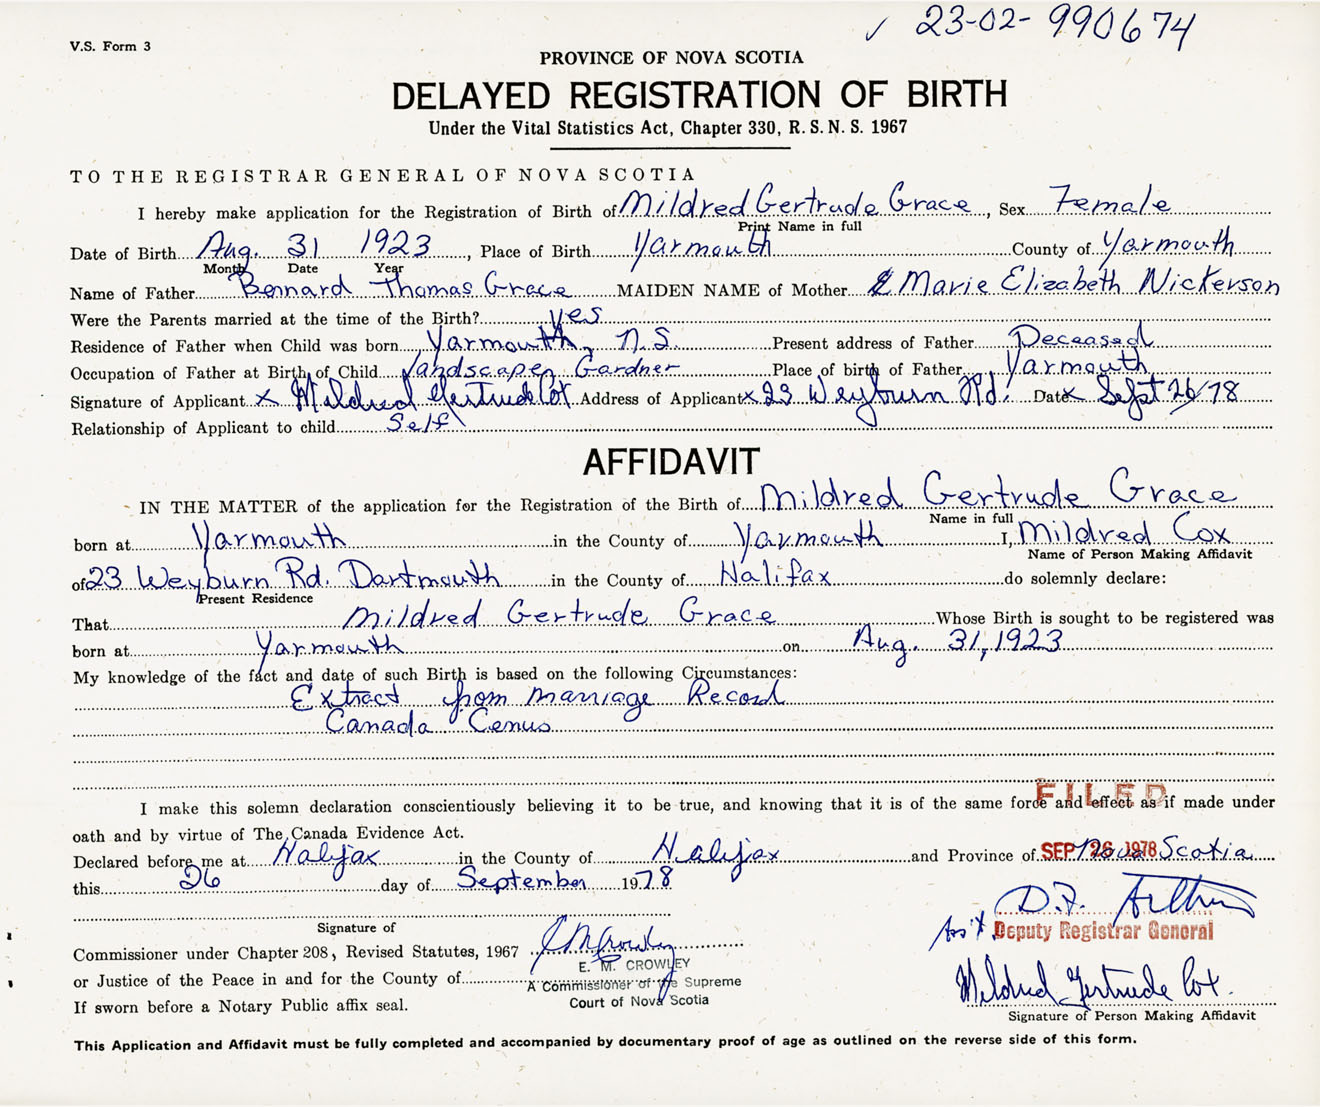 ✓ 23-02-990674
V.S. Form 3
PROVINCE OF NOVA SCOTIA
DELAYED REGISTRATION OF BIRTH
Under the Vital Statistics Act, Chapter 330, R.S.N.S. 1967
TO THE REGISTRAR GENERAL OF NOVA SCOTIA
I hereby make application for the Registration of Birth of Mildred Gertrude Grace, Sex Female
Print Name in full
Date of Birth Aug. 31 1923, Place of Birth Yarmouth County of Yarmouth
Month Date Year
Name of Father Bernard Thomas Grace MAIDEN NAME of Mother Marie Elizabeth Nickerson
Were the Parents married at the time of the Birth? yes
Residence of Father when Child was born Yarmouth, N.S. Present address of Father Deceased
Occupation of Father at Birth of Child Landscape Gardner Place of birth of Father Yarmouth
Signature of Applicant x Mildred Gertrude Cox Address of Applicant x 23 Weyburn Rd. Date x Sept 26/78
Relationship of Applicant to child Self
AFFIDAVIT
IN THE MATTER of the application for the Registration of the Birth of Mildred Gertrude Grace
Name in full
born at Yarmouth in the County of Yarmouth I, Mildred Cox
Name of Person Making Affidavit
of 23 Weyburn Rd. Dartmouth in the County of Halifax do solemnly declare:
Present Residence
That Mildred Gertrude Grace Whose Birth is sought to be registered was
born at Yarmouth on Aug. 31, 1923
My knowledge of the fact and date of such Birth is based on the following Circumstances:
Extract from marriage Record
Canada Cenus
FILED
I make this solemn declaration conscientiously believing it to be true, and knowing that it is of the same force and effect as if made under
oath and by virtue of The Canada Evidence Act.
Declared before me at Halifax in the County of Halifax and Province of Nova Scotia
SEP 26 1978
this 26 day of September 1978
D.F. Arthur
Signature of
Ass't Deputy Registrar General
Commissioner under Chapter 208, Revised Statutes, 1967 E M Crowley
E. M. CROWLEY
or Justice of the Peace in and for the County of
A Commissioner of the Supreme
Mildred Gertrude Cox.
If sworn before a Notary Public affix seal.
Court of Nova Scotia
Signature of Person Making Affidavit
This Application and Affidavit must be fully completed and accompanied by documentary proof of age as outlined on the reverse side of this form.